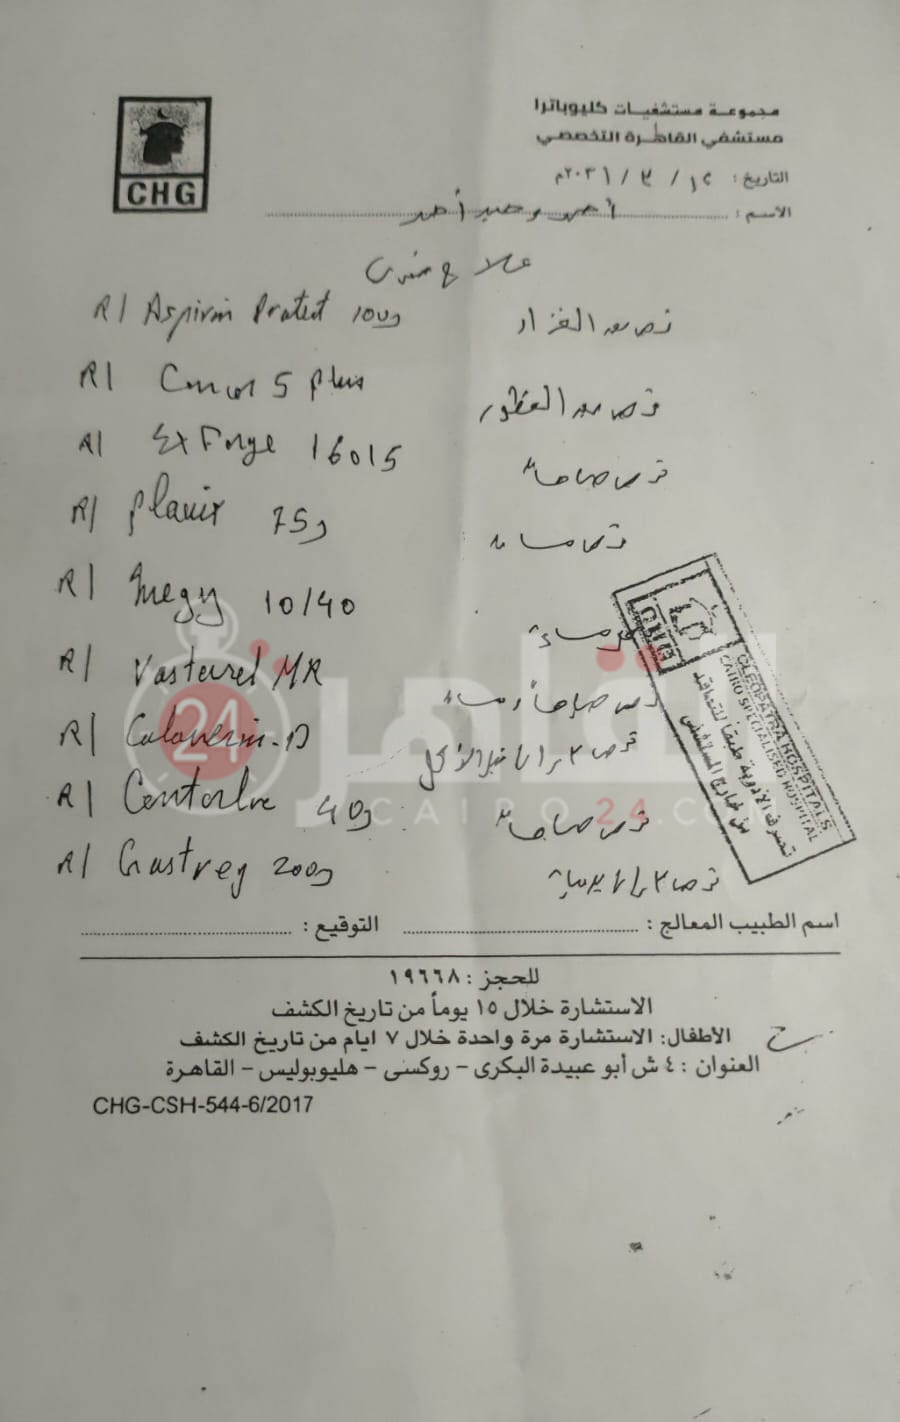 CHG
مجموعة مستشفيات كليوباترا
مستشفي القاهرة التخصصي
التاريخ : ١٢ / ٣ / ٢٠٢١م
الاسم : أحمد وحيد أحمد
علاج شهري
R/ Aspirin Protect 100g قرص بعد الغذاء
R/ Concor 5 plus قرص بعد الفطور
R/ Exforge 160/5 قرص صباحا
R/ Plavix 75g قرص مساء
R/ Inegy 10/40 قرص مساءً
R/ Vastarel MR قرص صباحا ومساء
R/ D قرص ٣ مرات قبل الأكل
R/ 40g قرص صباحاً
R/ Gastreg 200g قرص ٣ مرات يوميا
CHG
CLEOPATRA HOSPITALS
CAIRO SPECIALISED HOSPITAL
تصرف الأدوية طبقا للتعاقد
من خارج المستشفى
القاهرة 24
CAIRO24.COM
اسم الطبيب المعالج : التوقيع :
للحجز : ١٩٦٦٨
الاستشارة خلال ١٥ يوماً من تاريخ الكشف
الأطفال: الاستشارة مرة واحدة خلال ٧ ايام من تاريخ الكشف
العنوان : ٤ ش أبو عبيدة البكرى – روكسى – هليوبوليس – القاهرة
CHG-CSH-544-6/2017